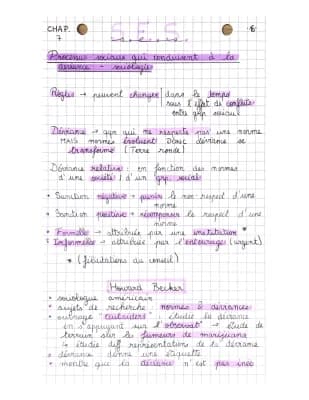 CHAP. 7
SES
Processus sociaux qui conduisent à la
déviance - sociologie
Règles → peuvent changer dans le temps
sous l'effet de conflits
entre grp sociaux
Déviance → qqn qui ne respecte pas une norme
mais normes évoluent Donc déviance se
transforme (Terre ronde)
Déviance relative : en fonction des normes
d'une société / d'un grp social
• Sanction négative → punir le non-respect d'une
norme
• Sanction positive → récompenser le respect d'une
norme
• Formelle → attribuée par une institution *
• Informelle → attribuée par l'entourage (argent)
* (félicitations au conseil)
Howard Becker
• sociologue américain
• sujets de recherche : normes & déviances
• ouvrage "outsiders" : étudie la déviance
en s'appuyant sur l'observat° → étude de
terrain sur les fumeurs de marijuana
↳ étudie diff représentations de la déviance
• déviance donne une étiquette
• montre que la déviance n'est pas innée